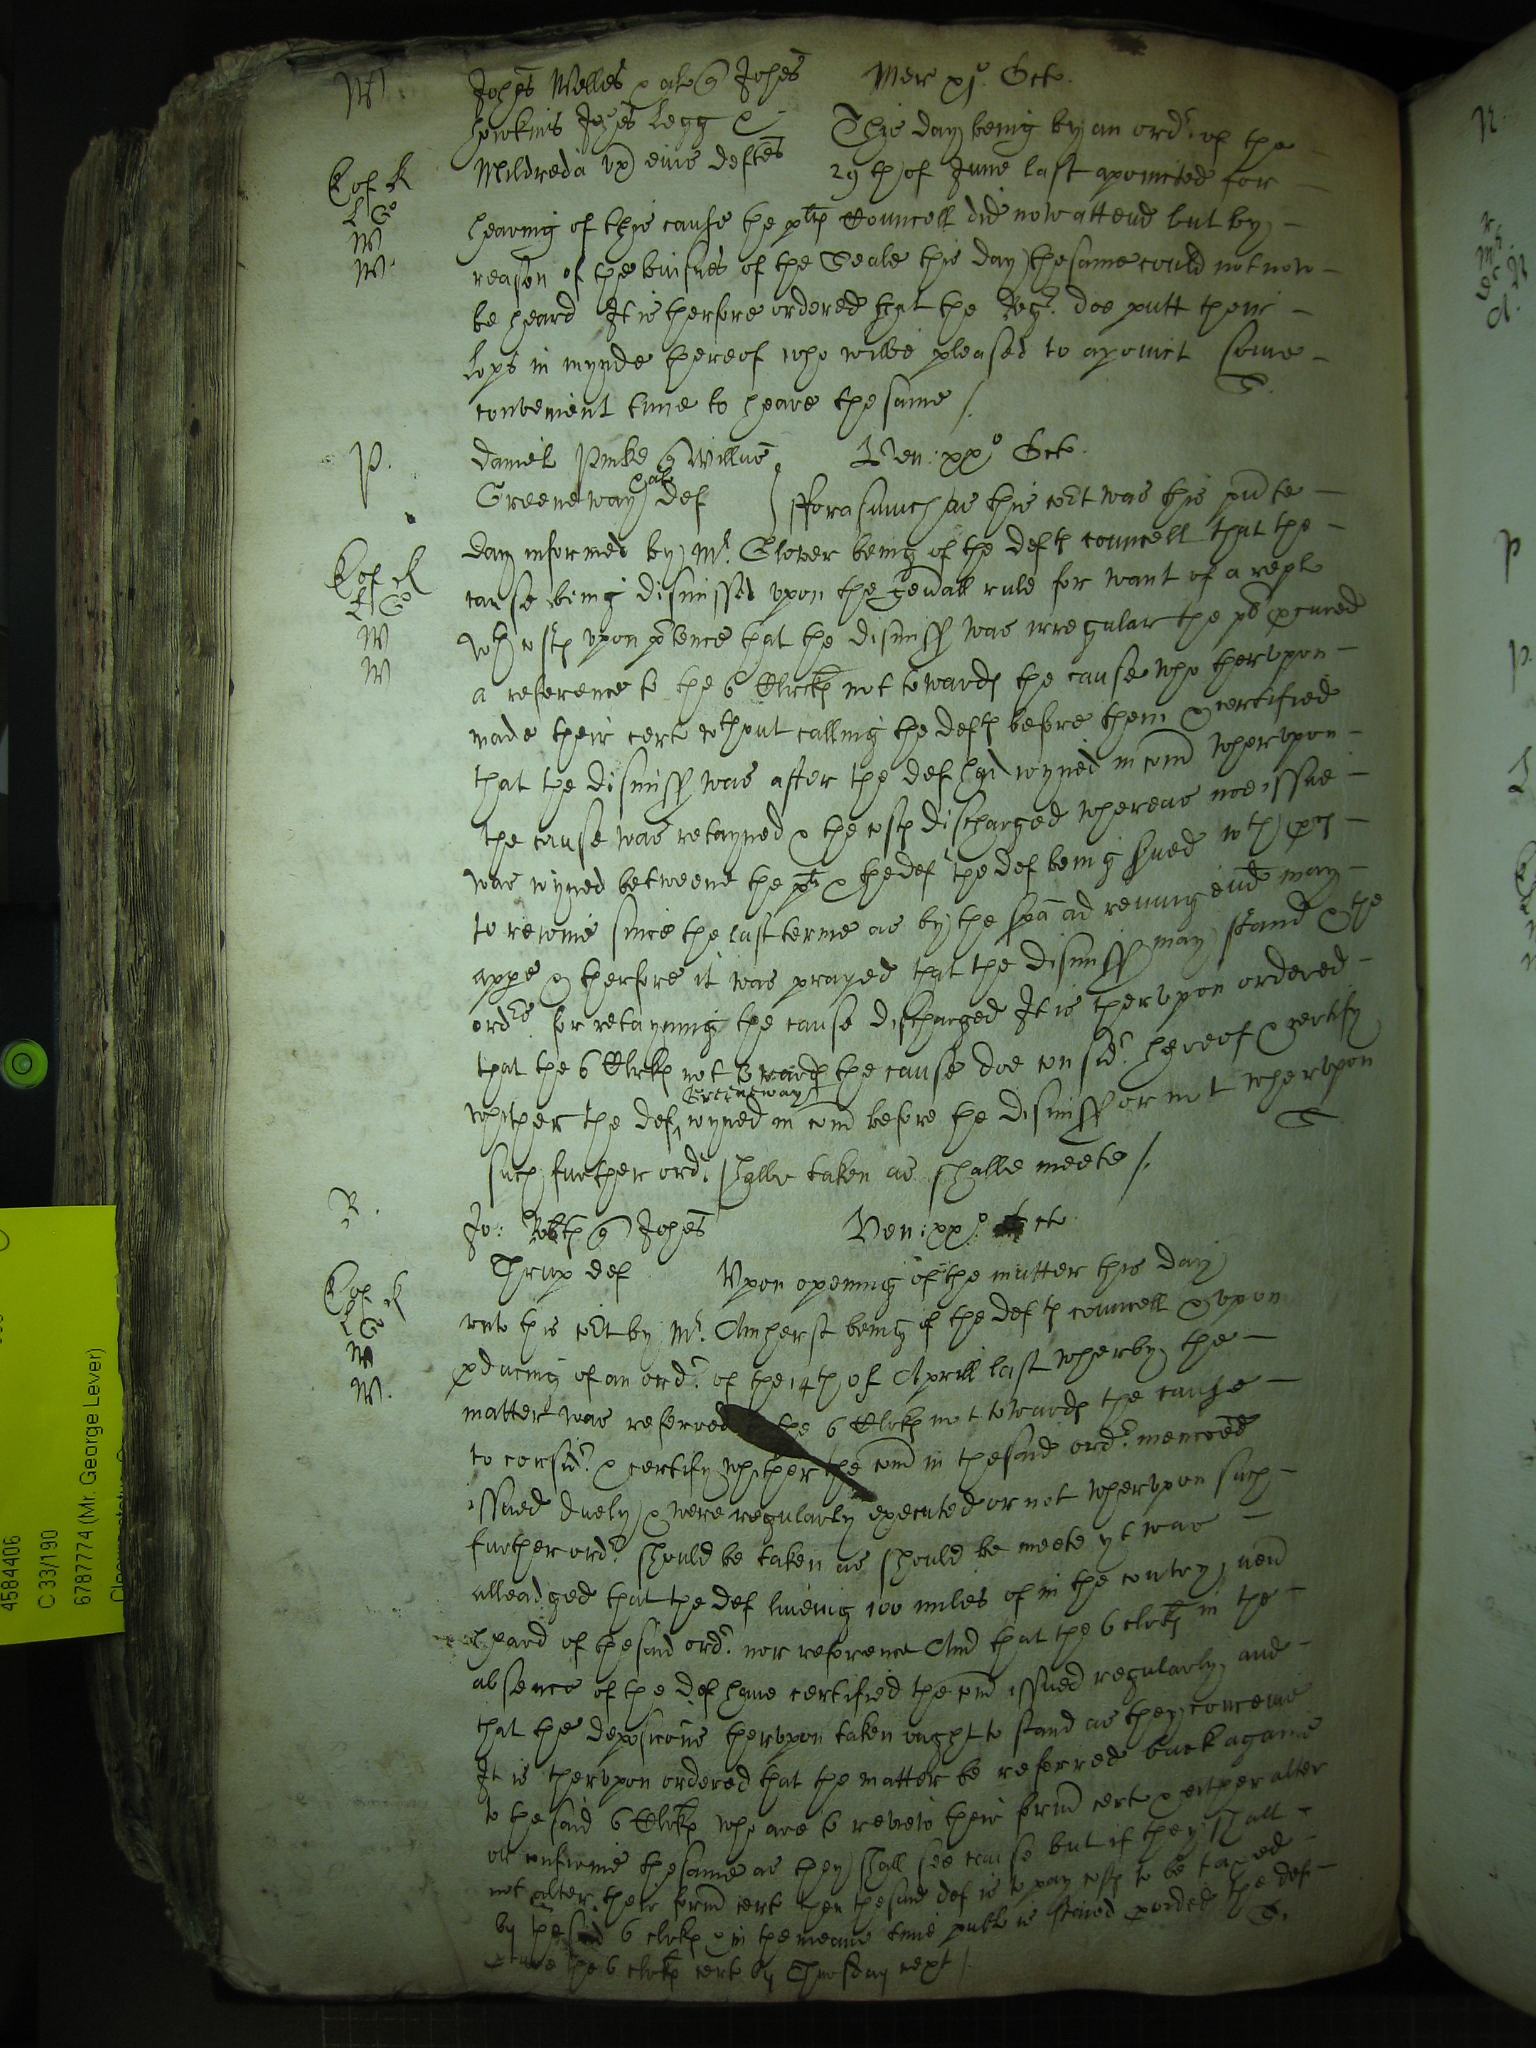 W
Johes Welles & al q Johes Mer xj° Octo
Hawkins Johes Legg &
Mildreda ux eius deftes This day being by an ordr of the
29th of June last apointed for
hearing of this cause the plts Councell did now attend but by
reason of the buisnes of the Seale this day the same could not now
be heard It is therfore ordered that the Regr doe putt their
Lops in mynde hereof who wilbe pleased to apoinct some
convenient time to heare the same /.
P.
Daniel Pinke q Willus Ven: xx° Octo
Greeneway & al def fforasmuch as this cort was this pnte
day informed by Mr. Glover being of the defts councell that the
cause being dismissed upon the gen'all rule for want of a repl
wth costs upon p'tence that the dismiss was irregular the pl pcured
a reference to the 6 Clerks not towards the cause who therupon
made their cert wthout calling the defts before them & certified
that the dismiss was after the def had ioyned in com wherupon
the cause was retayned & the costs discharged whereas noe issue
was ioyned betweene the pl & the def the def being sued wth pces
to reioine since the last terme as by the spa ad reiung evid may
appe & therfore it was prayed that the dismiss may stand & the
ordrs for retayning the cause discharged It is therupon ordered
that the 6 Clerks not towards the cause doe considr hereof & certify
whither the def Greeneway ioyned in com before the dismiss or not wherupon
such further ordr shalbe taken as shalbe meete /.
R.
Jo: Robts q Johes Ven: xx° Octo
Thrup def Upon opening of the matter this day
unto this cort by Mr. Amherst being of the defts councell & upon
pducing of an ordr of the 14th of Aprill last wherby the
matter was referred to the 6 Clerks not towards the cause
to considr & certify whither the com in the said ordr menconed
issued duely & were regularly executed or not wherupon such
further ordr should be taken as should be meete yt was
alleadged that the def liveing 100 miles of in the contry nev
heard of the said ordr nor reference And that the 6 clerks in the
absence of the def have certified the com issued regularly and
that the deposicons therupon taken ought to stand as they conceive
It is therupon ordered that the matter be referred back againe
to the said 6 Clerks who are to review their form cert & either alter
or confirme the same as they shall see cause but if they shall
not alter their form cert then the said def is to pay costs to be taxed
by the said 6 clerks & in the meane time publ is staied pvided the def
the 6 clerks cert by Thursday next /
4584406
C 33/190
6787774 (Mr. George Lever)